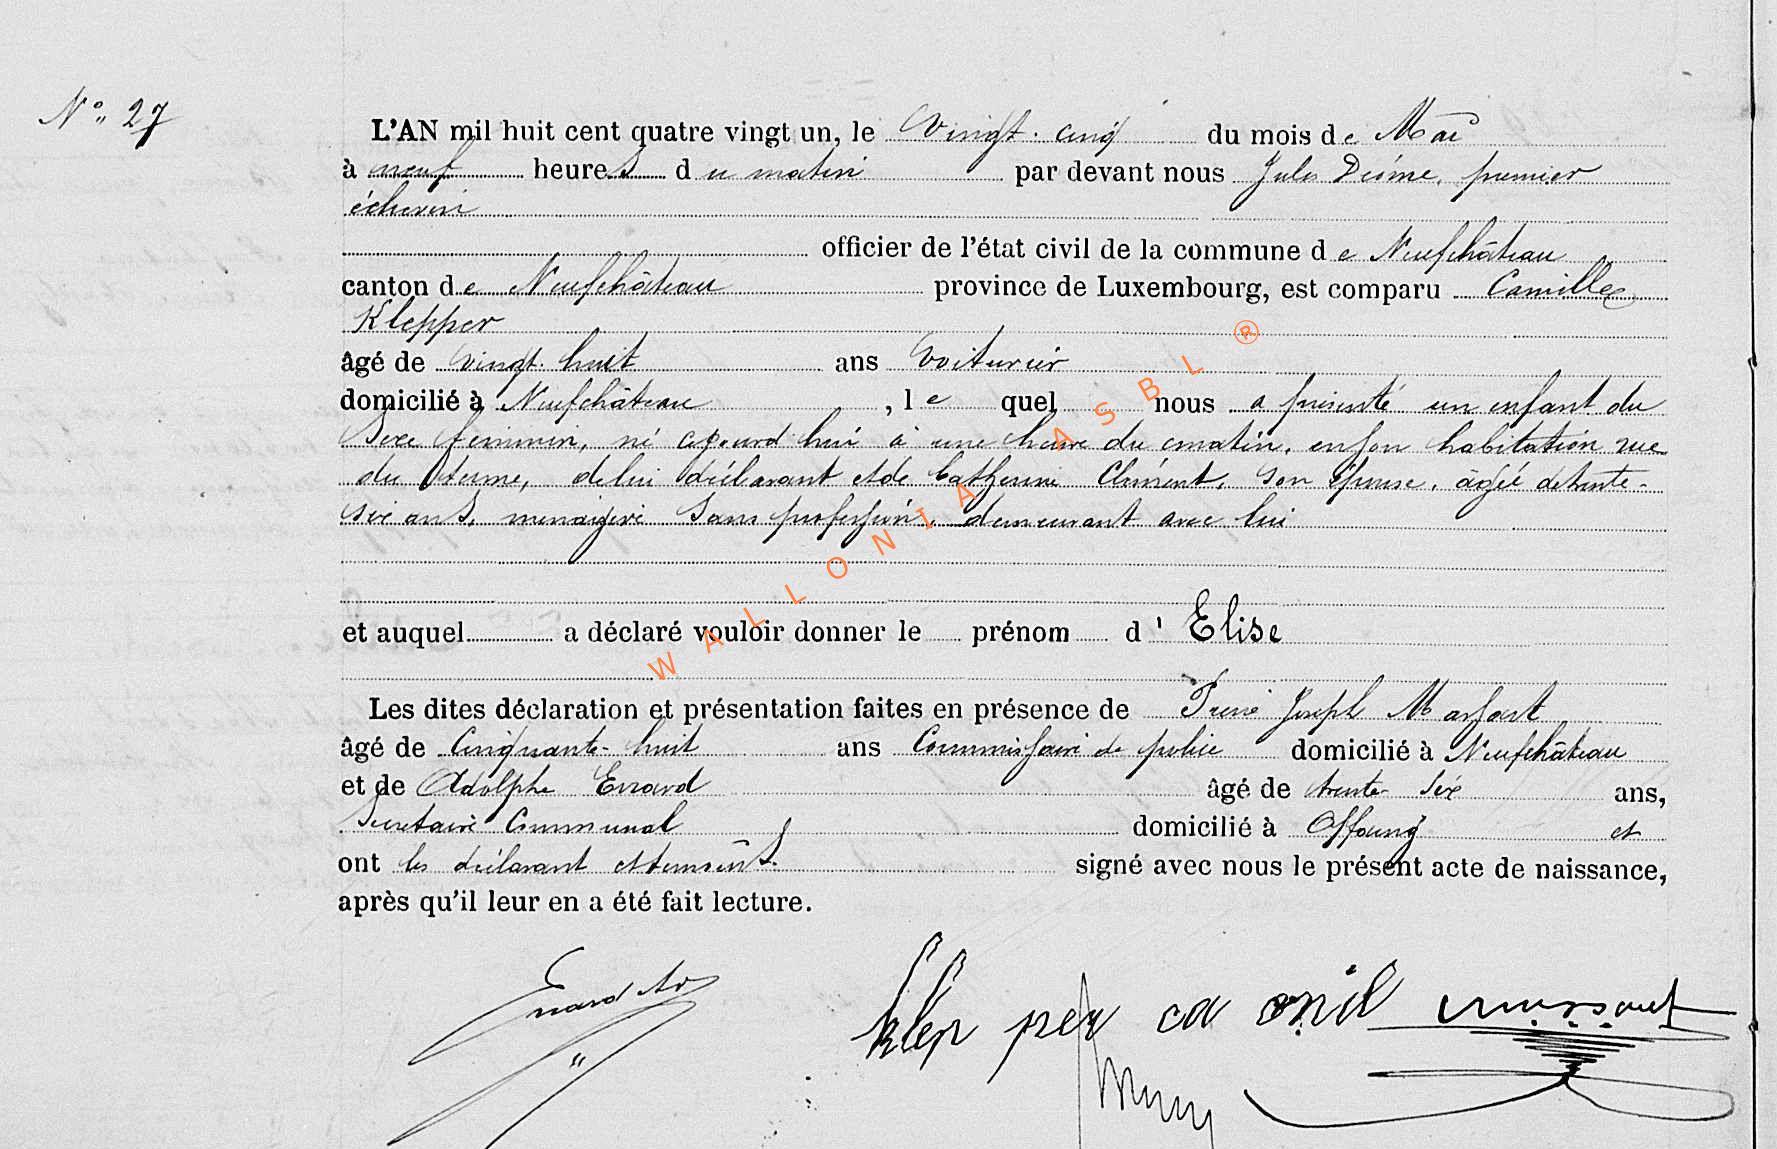 N° 27
L'AN mil huit cent quatre vingt un, le vingt-cinq du mois de Mai
à neuf heures du matin par devant nous Jules Diome, premier
échevin
officier de l'état civil de la commune de Neufchâteau
canton de Neufchâteau province de Luxembourg, est comparu Camille
Klepper
âgé de vingt-huit ans voiturier
domicilié à Neufchâteau, lequel nous a présenté un enfant du
sexe féminin, né aujourd'hui à une heure du matin, en son habitation rue
du terme, de lui déclarant et de Catherine Clément, son épouse, âgée de trente-
six ans, menagère sans profession, demeurant avec lui
et auquel a déclaré vouloir donner le prénom d'Elise
Les dites déclaration et présentation faites en présence de Joseph
âgé de Cinquante-huit ans Commissaire de police domicilié à Neufchâteau
et de Adolphe Enard âgé de trente-six ans,
Secretaire Communal domicilié à Offaing et
ont les déclarant et témoins signé avec nous le présent acte de naissance,
après qu'il leur en a été fait lecture.
Enard Ad
klep per ca mil
WALLONIA ASBL ®